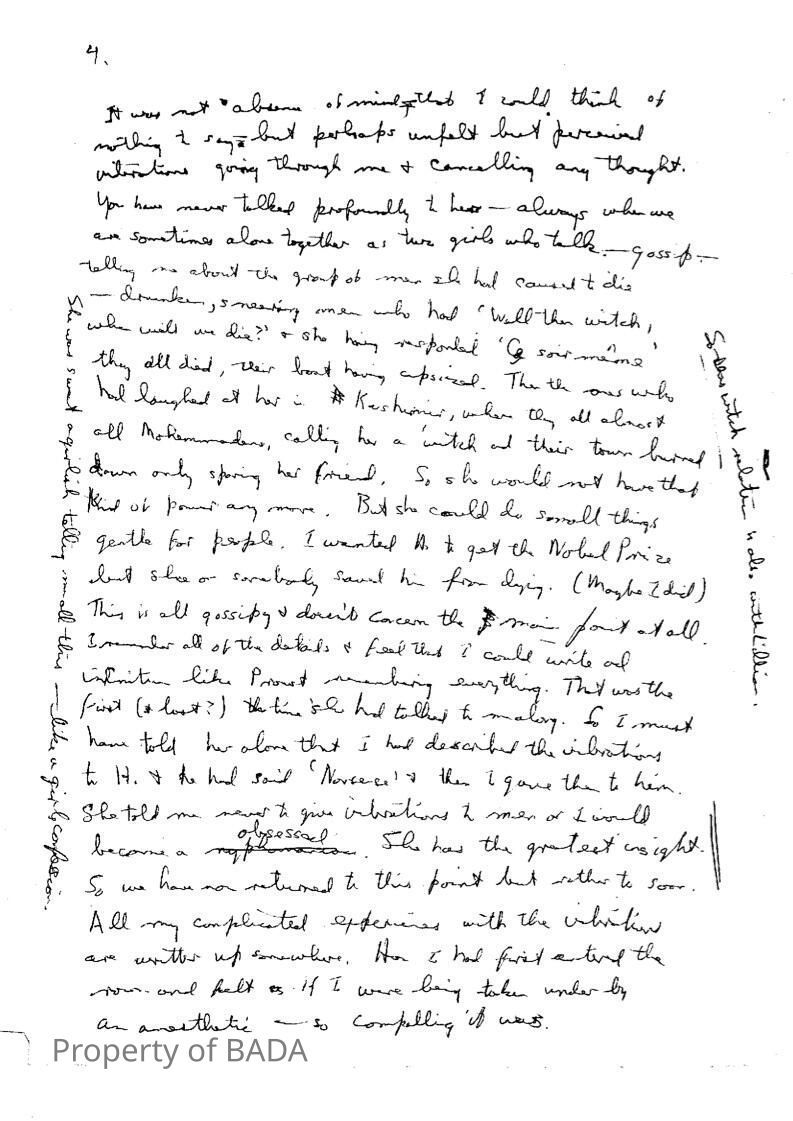 4.
It was not absence of mind that I could think of
nothing to say but perhaps unfelt but perceived
vibrations going through me & cancelling any thought.
You have never talked profoundly to her — always when we
are sometimes alone together as two girls who talk — gossip —
telling me about the group of men she had caused to die
— drunken, sneering men who had 'Well then witch,
when will we die?' & she having responded 'Ce soir même'
they all died, their boat having capsized. Then the ones who
had laughed at her in Kashmir, where they all almost
all Mohammadans, calling her a witch and their town burned
down only sparing her friend. So she would not have that
kind of power any more. But she could do small things
gentle for people. I wanted H. to get the Nobel Prize
but she or somebody saved him from dying. (Maybe I did)
This is all gossipy & doesn't concern the main point at all.
I remember all of the details & feel that I could write ad
infinitum like Proust remembering everything. That was the
first (& last?) the time she had talked to me along. So I must
have told her alone that I had described the vibrations
to H. & he had said & then I gave them to him.
She told me never to give vibrations to men or I would
become a obsessed. She has the greatest insight.
So we have now returned to this point but rather too soon.
All my complicated experiences with the vibration
are written up somewhere. How I had first entered the
room and felt as if I were being taken under by
an anesthetic — so compelling it was.
She was sweet & girlish telling me all this — like a girl's confession.
So this witch relation is also with Lillian.
Property of BADA